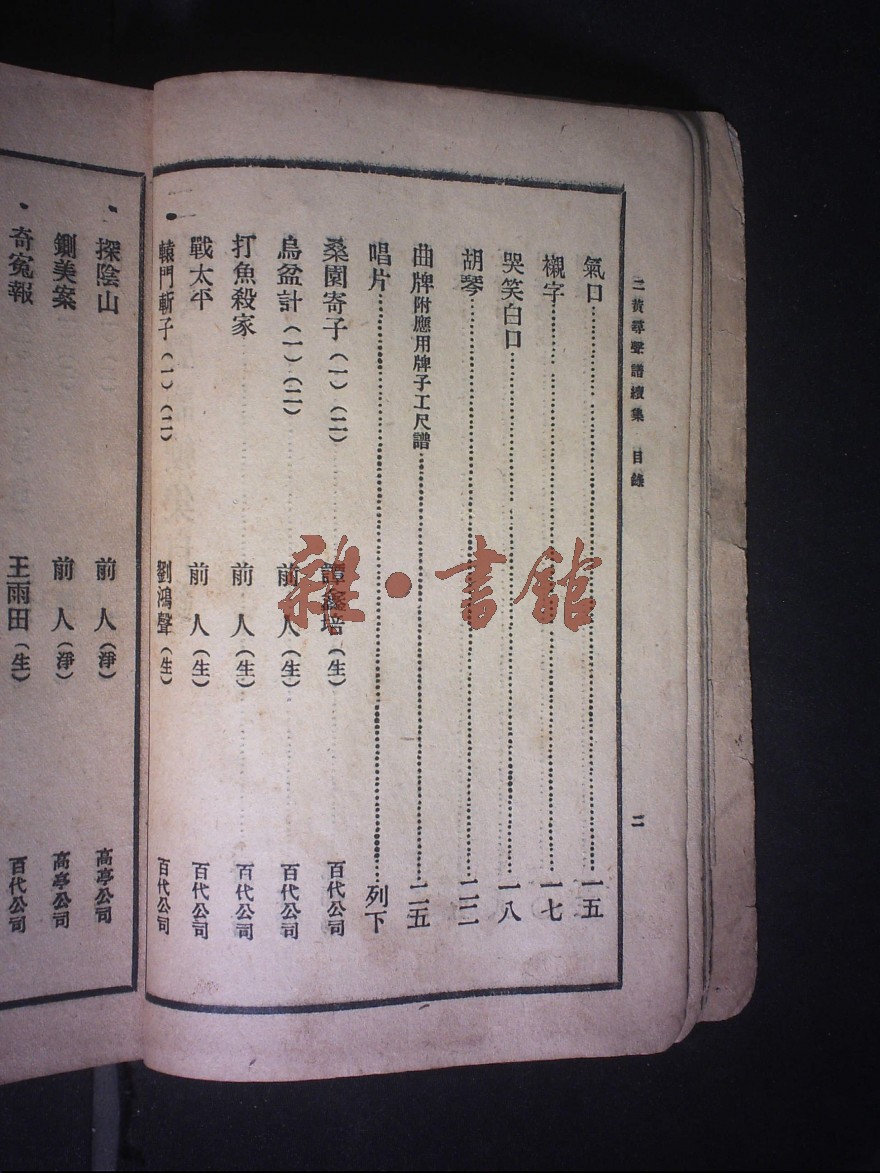 二黃尋聲譜續集　目錄　二
氣口……一五
襯字……一七
哭笑白口……一八
胡琴……二二
曲牌附應用牌子工尺譜……二五
唱片……列下
桑園寄子（一）（二）　譚鑫培（生）　百代公司
烏盆計（一）（二）　前人（生）　百代公司
打魚殺家　前人（生）　百代公司
戰太平　前人（生）　百代公司
轅門斬子（一）（二）　劉鴻聲（生）　百代公司
探陰山　前人（淨）　高亭公司
鍘美案　前人（淨）　高亭公司
奇冤報　王雨田（生）　百代公司
雜·書館